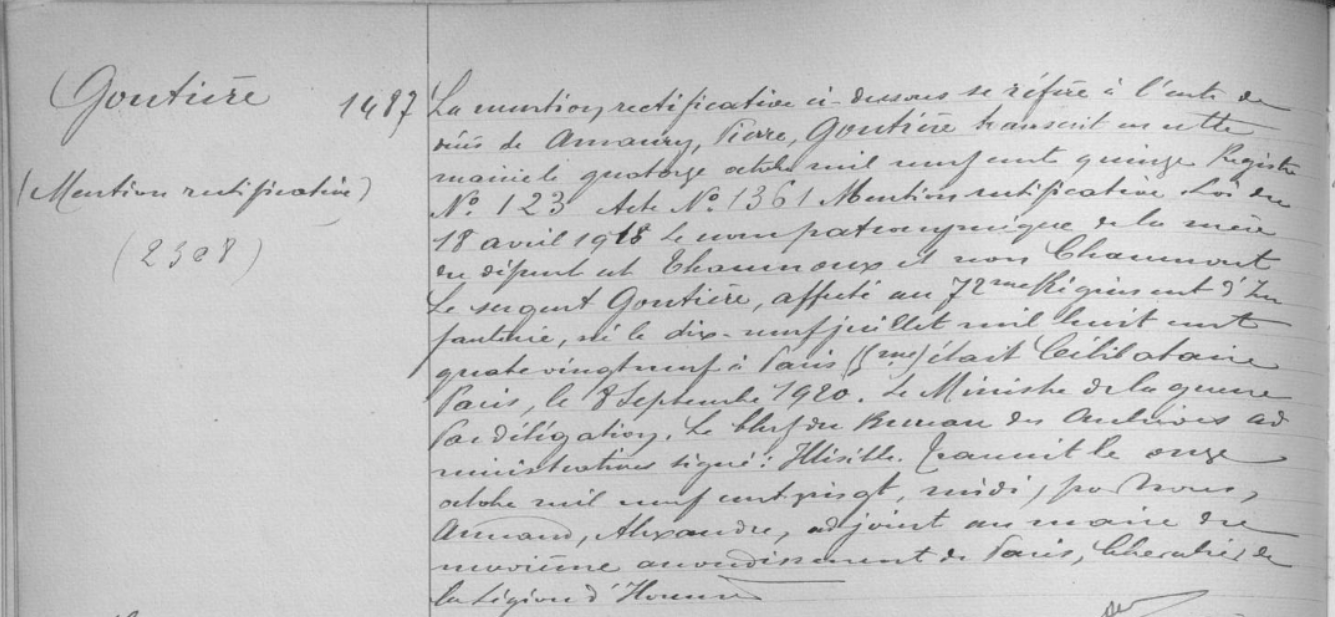 Goutière 1487
(Mention rectificative)
(2308)
La mention rectificative ci-dessous se réfère à l'acte de
décès de Amaury, Pierre, Goutière transcrit en cette
mairie le quatorze octobre mil neuf cent quinze Registre
N° 123 Acte N° 1361 Mention rectificative Loi du
18 avril 1918 Le nom patronymique de la mère
du défunt est Thaumoux et non Chaumont
Le sergent Goutière, affecté au 72me Régiment d'In
fanterie, né le dix-neuf juillet mil huit cent
quatre vingt neuf à Paris (5me) était Célibataire
Paris, le 8 Septembre 1920. Le Ministre de la guerre
Par délégation. Le Chef du Bureau des Archives ad
ministratives signé: Illisible. Transcrit le onze
octobre mil neuf cent vingt, midi, par Nous,
Armand, Alexandre, adjoint au maire du
neuvième arrondissement de Paris, Chevalier de
la Légion d'Honneur